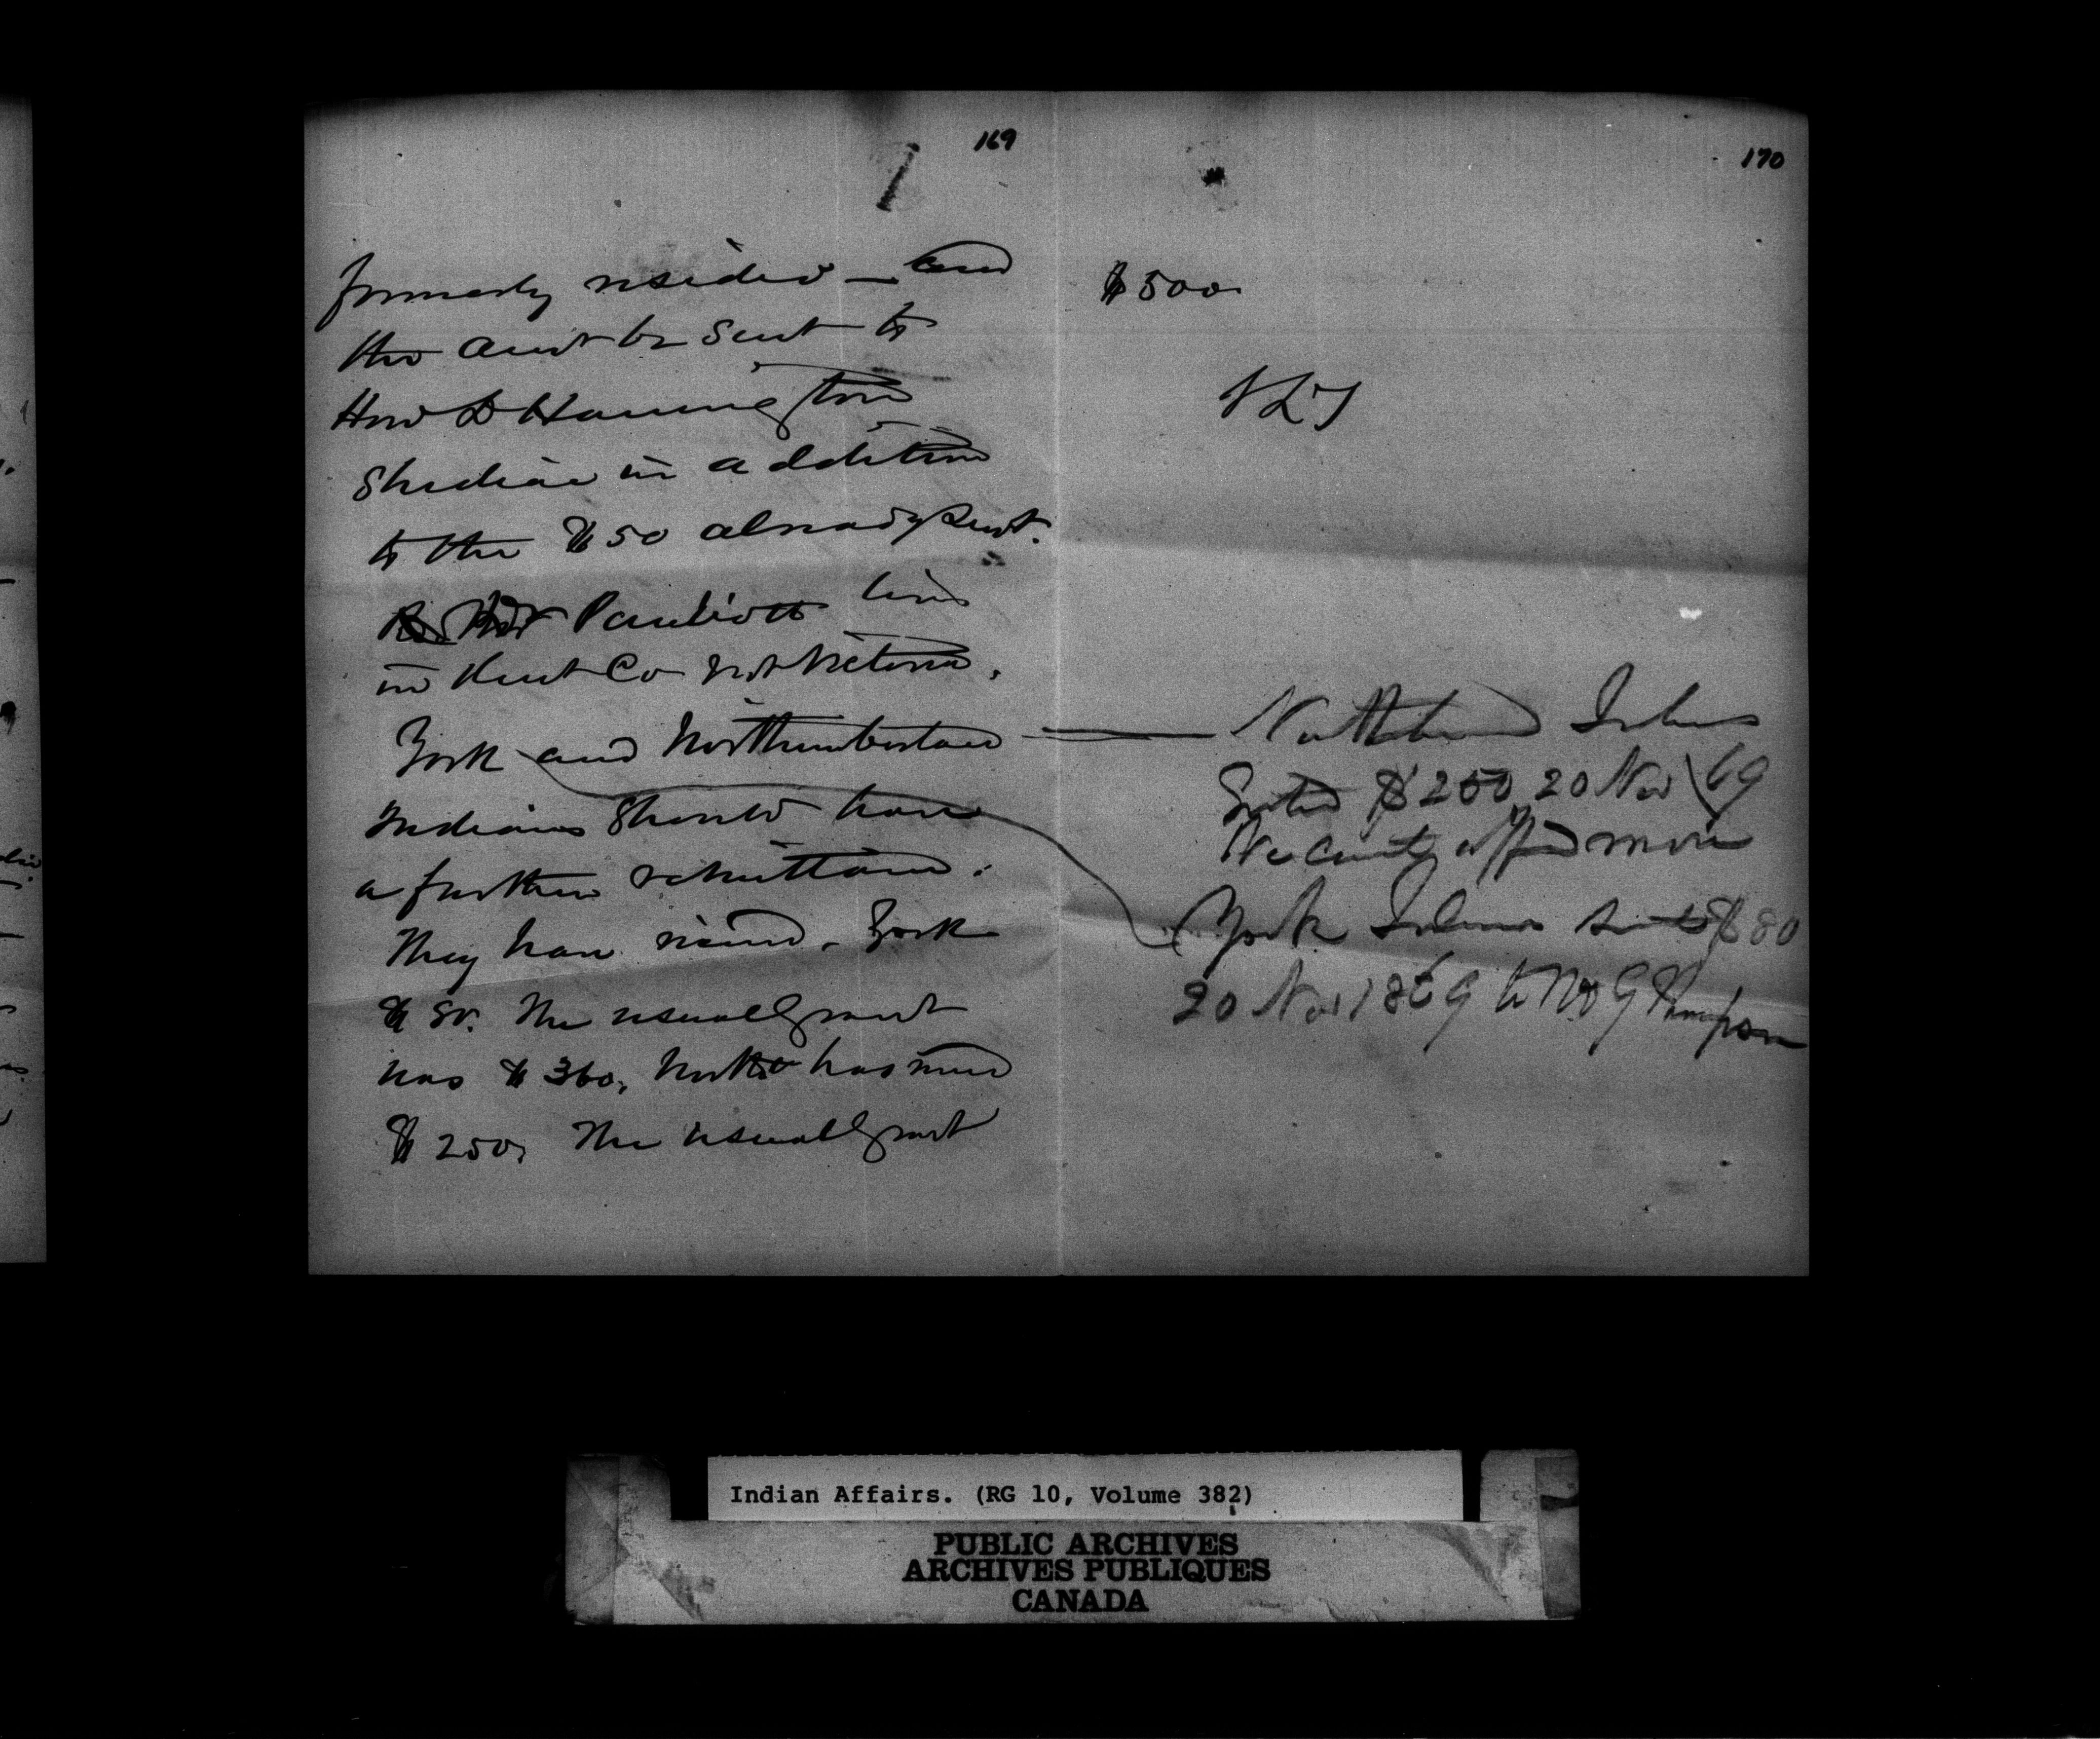 169
formerly resided — and
the amt be sent to
Hon D Hanington
Shediac in addition
to the $50 already sent.
lives
in Kent Co not Victoria.
York and Northumberland
Indians should have
a further remittance.
They have received. York
$80. The usual grant
was $360. North.d has received
$250. The usual grant
170
$500.
HLL
Northumberland Indians
Sent $250 20 Nov 69
We cant afford more
York Indians sent $80
20 Nov 1869 to W G Thompson
Indian Affairs. (RG 10, Volume 382)
PUBLIC ARCHIVES
ARCHIVES PUBLIQUES
CANADA